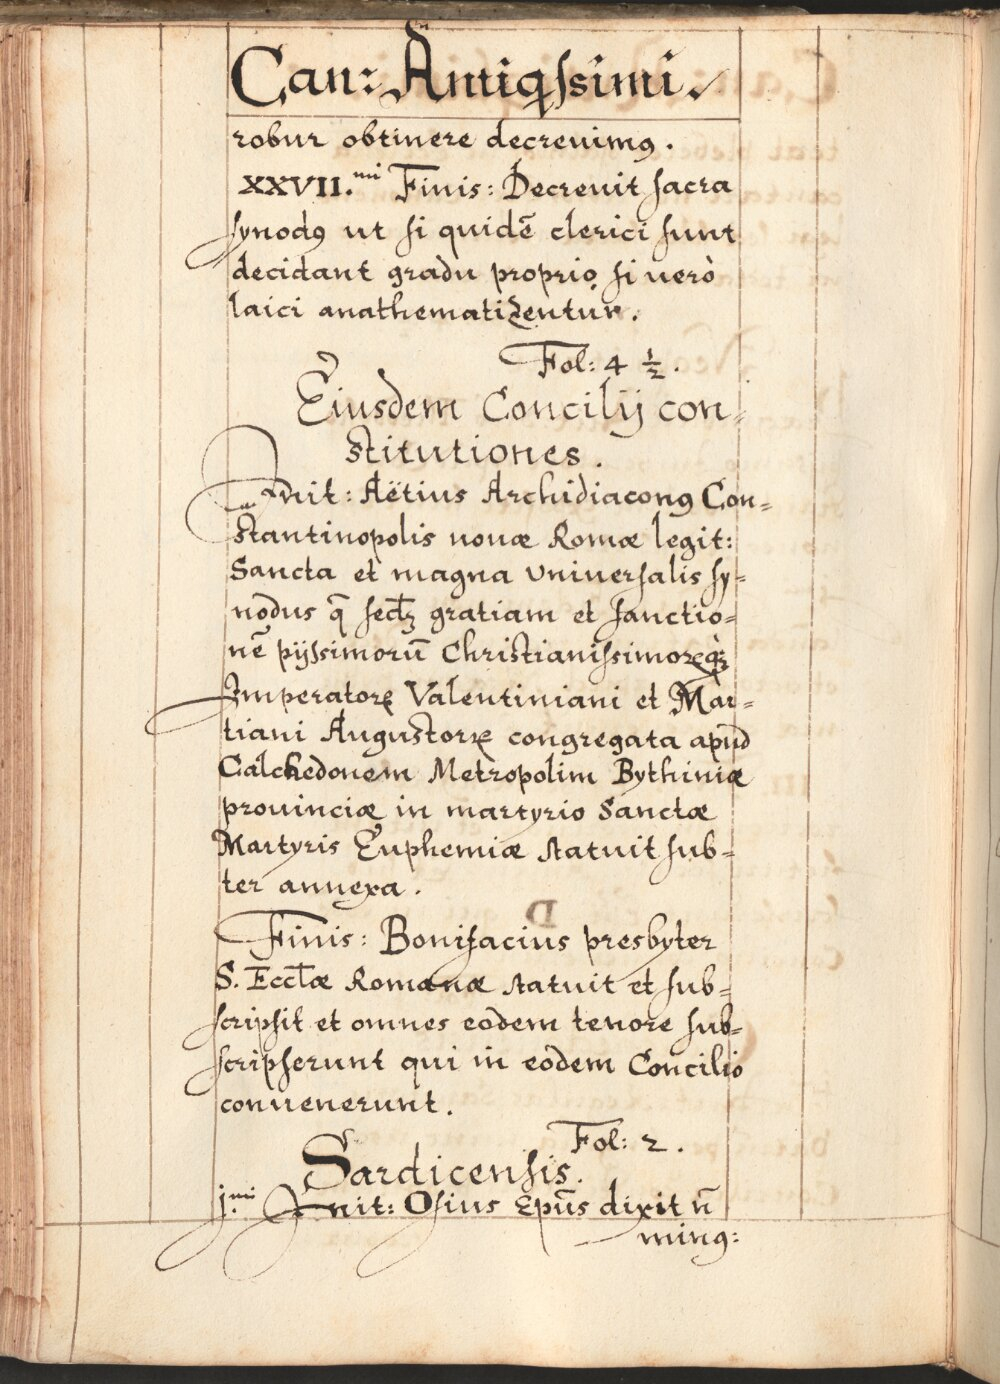 Can: Antiqssimi.
robur obtinere decreuimꝰ.
XXVII.mi Finis: Decreuit sacra
synodꝰ ut si quidē clerici sunt
decidant gradu proprio, si uerò
laici anathematizentur.
Fol: 4 ½.
Eiusdem Concilij con-
stitutiones.
Init: Aëtius Archidiaconꝰ Con-
stantinopolis nouæ Romæ legit:
Sancta et magna vniuersalis sy-
nodus q̄ secdꝫ gratiam et sanctio-
nē pijssimorū Christianissimorꝝqꝫ
Imperatorꝝ Valentiniani et Mar-
tiani Augustorꝝ congregata apud
Calchedonem Metropolim Bythiniæ
prouinciæ in martyrio Sanctæ
Martyris Euphemiæ statuit sub-
ter annexa.
Finis: Bonifacius presbyter
S. Eccłæ Romanæ statuit et sub-
scripsit et omnes eodem tenore sub-
scripserunt qui in eodem Concilio
conuenerunt.
Fol: 2.
Sardicensis.
j.mi Init: Osius Epūs dixit n̄
minꝰ: